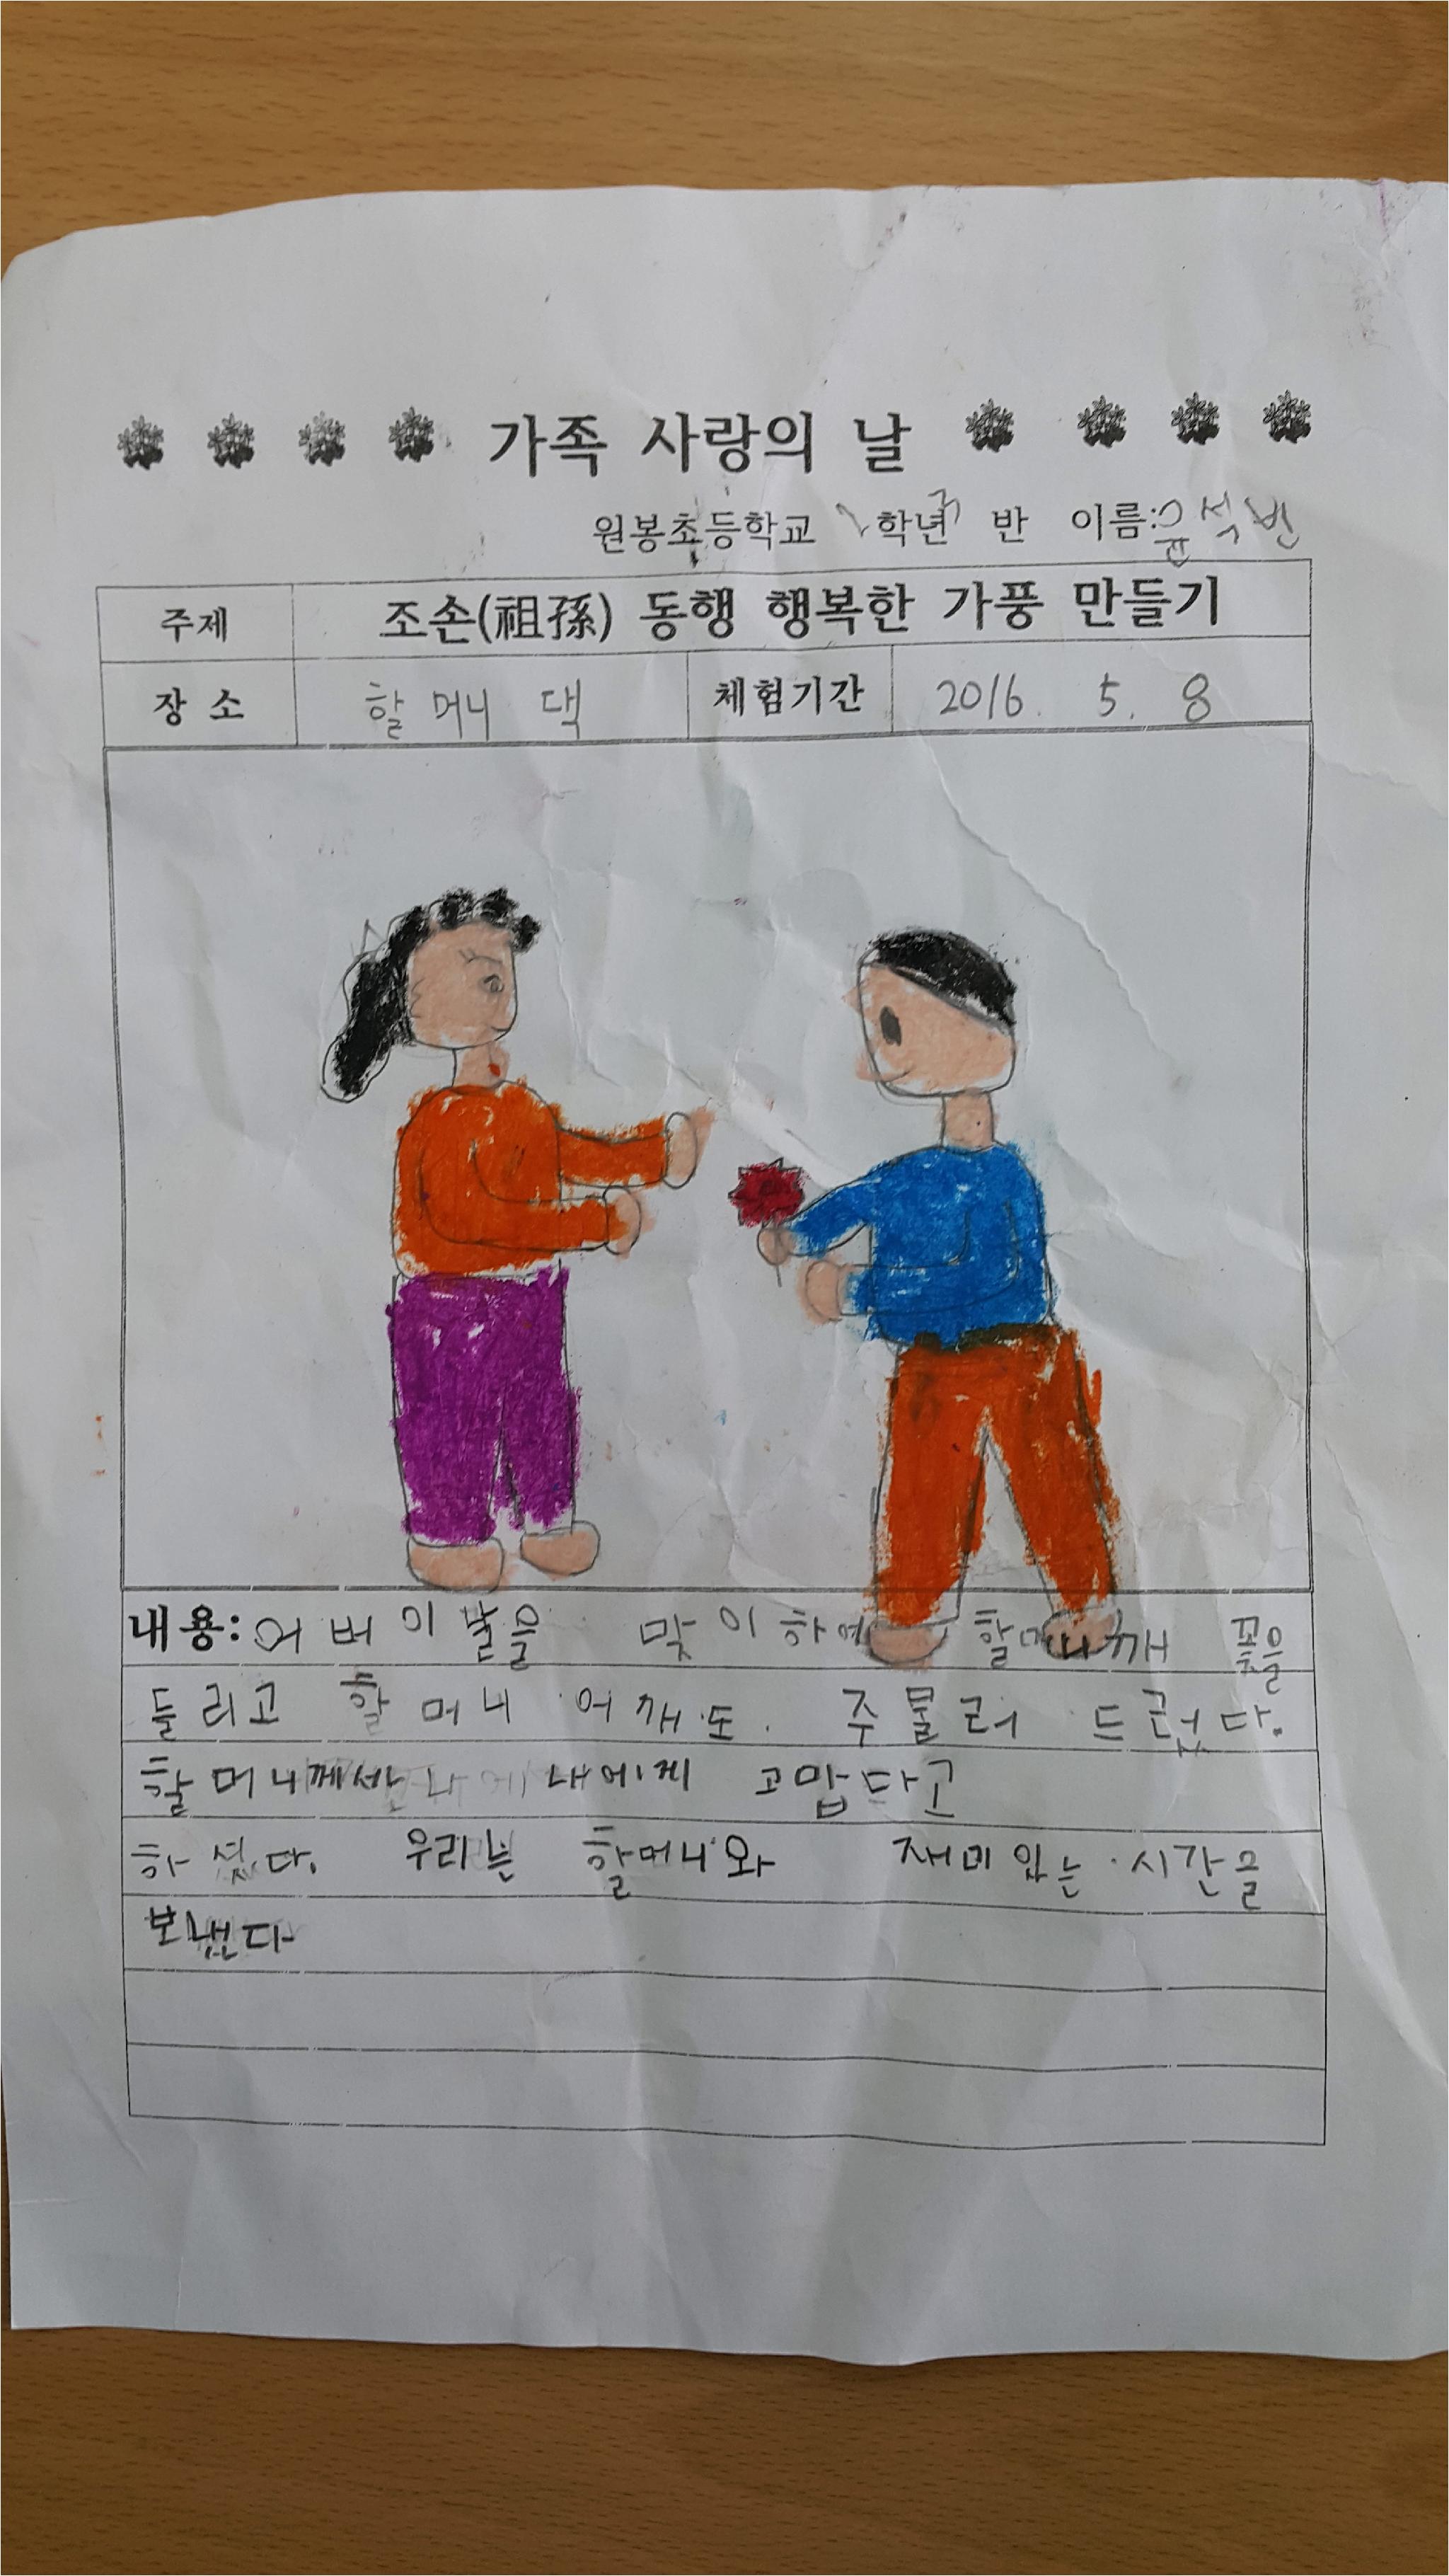 가족 사랑의 날
원봉초등학교 학년 반 이름: 윤석빈
주제 조손(祖孫) 동행 행복한 가풍 만들기
장소 할머니 댁 체험기간 2016. 5. 8
내용: 어버이날을 맞이하여 할머니깨 꽃을
들리고 할머니 어깨도. 주물러 드렸다.
할머니께서는 내에게 고맙다고
하셨다. 우리는 할머니와 재미있는 시간을
보냈다